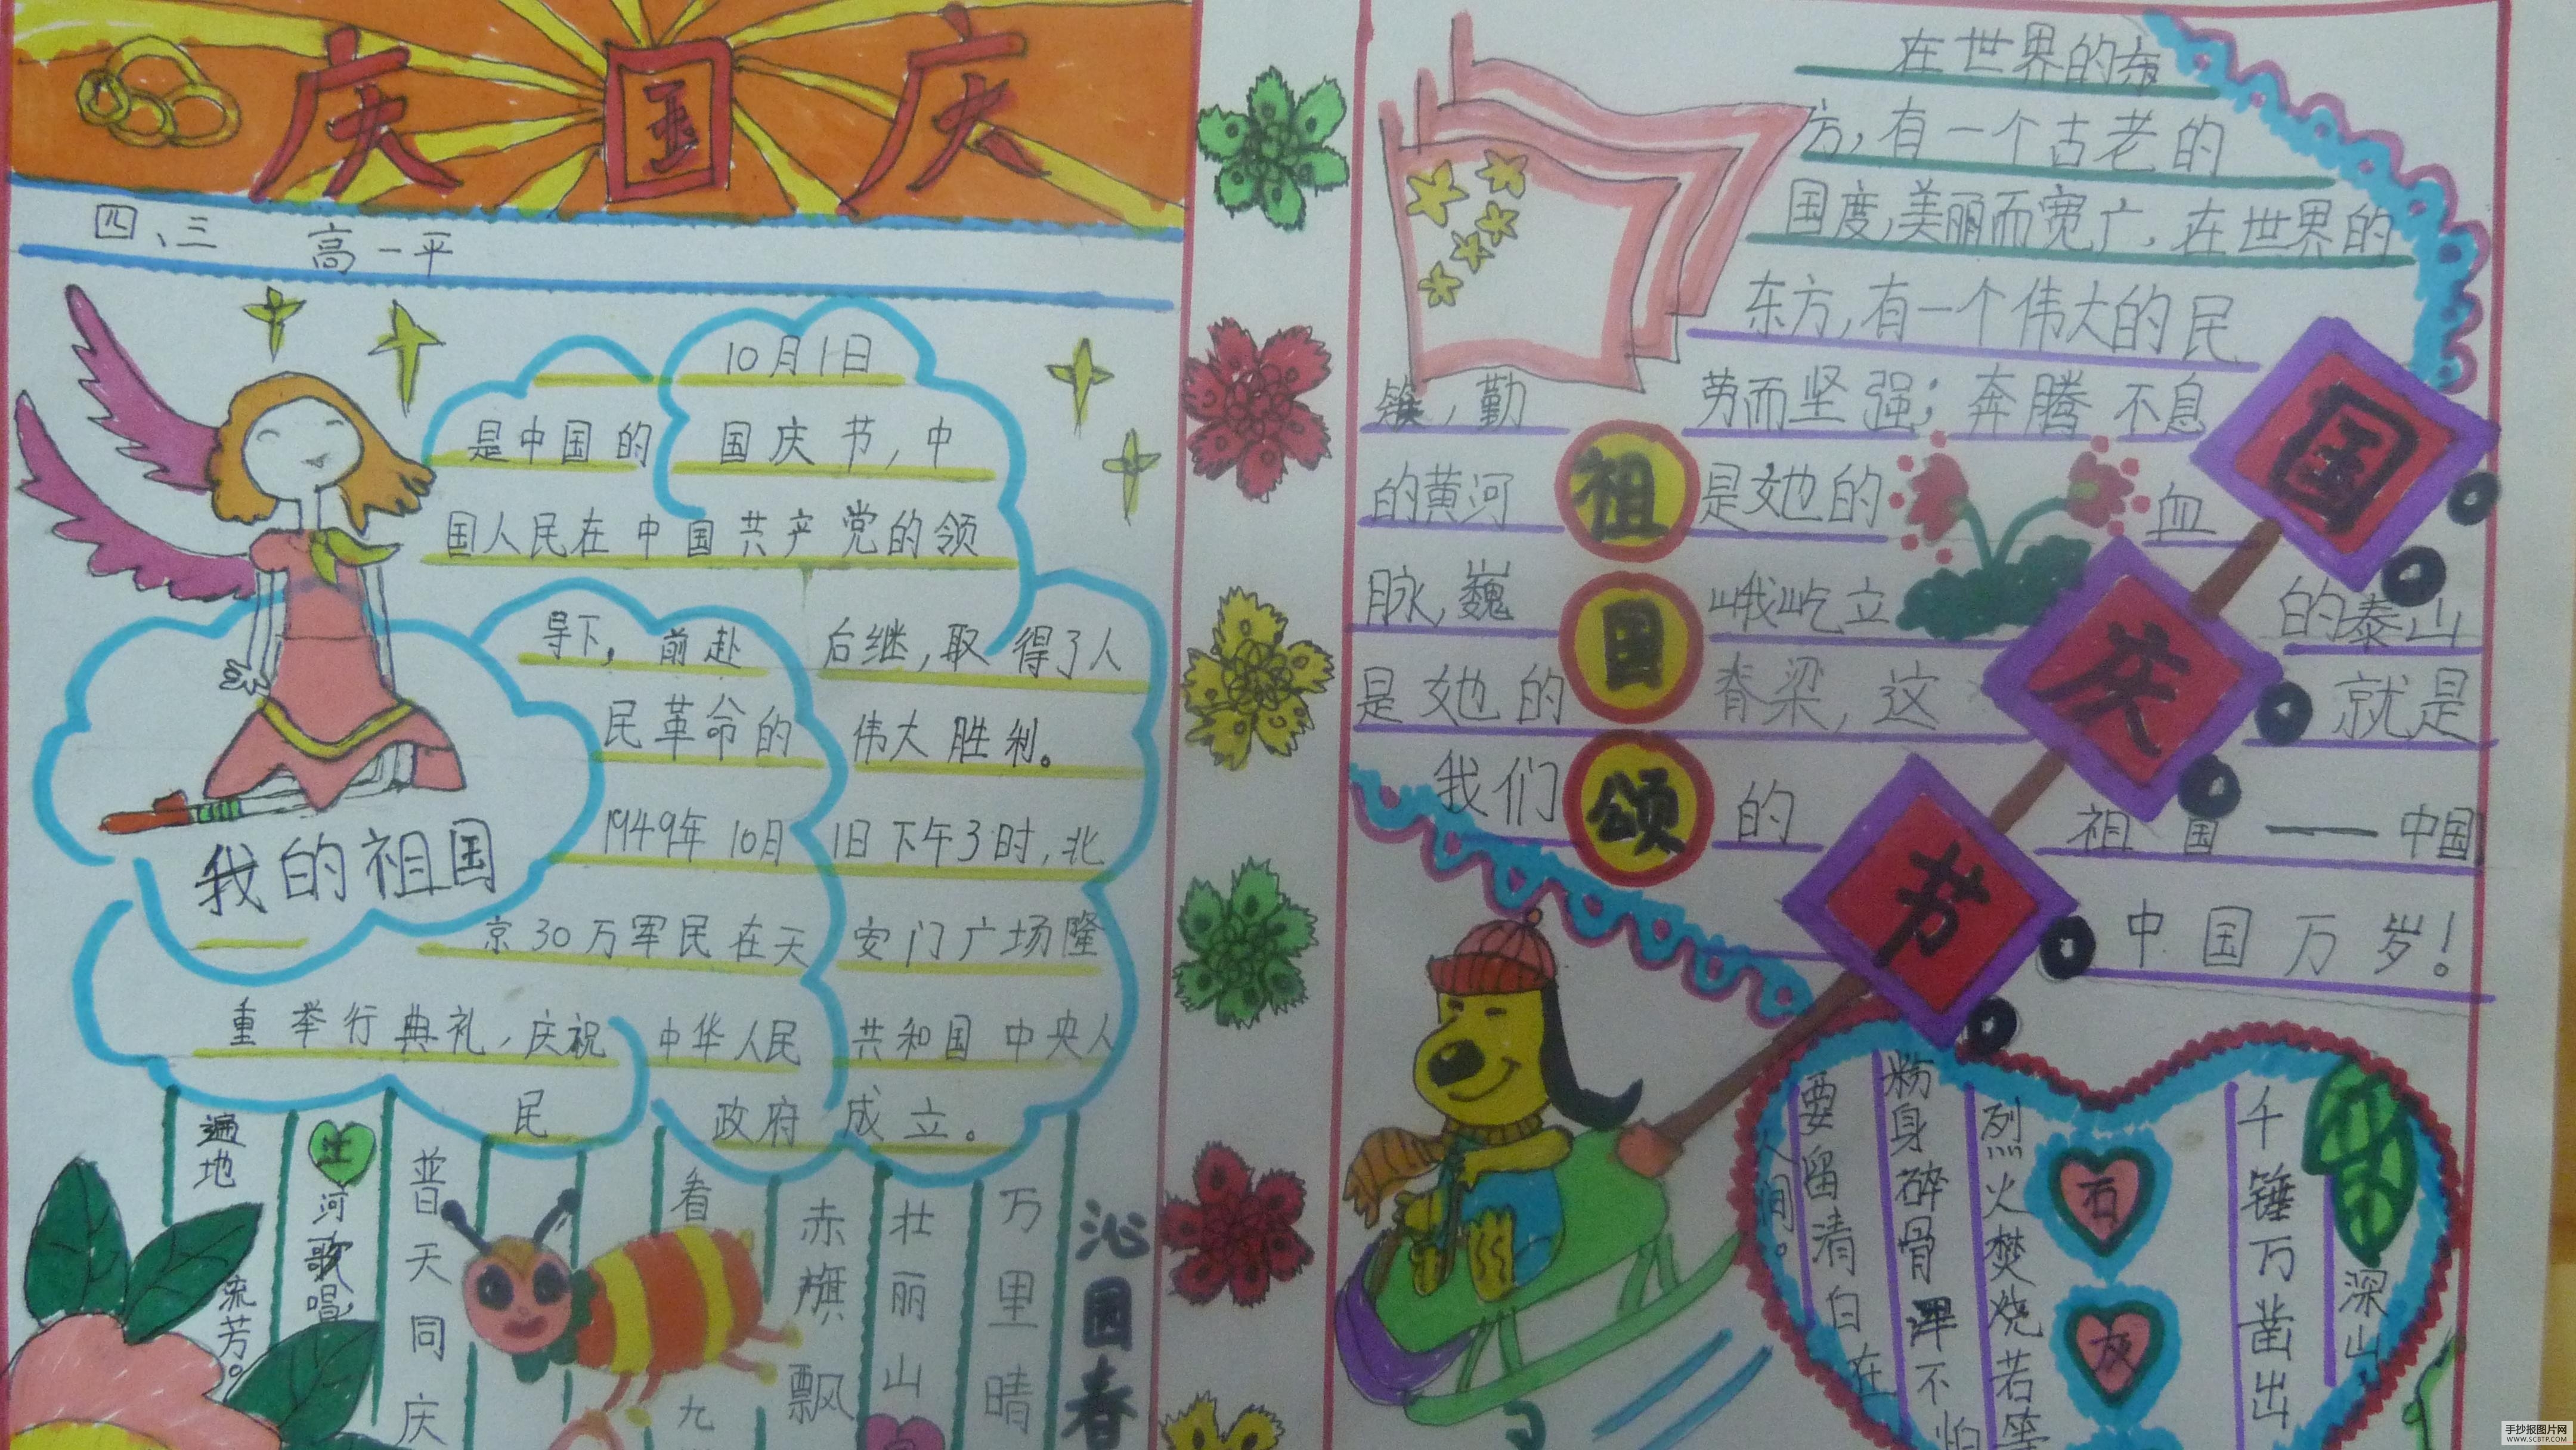 庆国庆
四、三 高一平
10月1日
是中国的 国庆节,中
国人民在中国共产党的领
导下,前赴 后继,取得了人
民革命的 伟大胜利。
1949年10月 1日下午3时,北
京30万军民在天 安门广场隆
重举行典礼,庆祝 中华人民 共和国中央人
民 政府 成立。
我的祖国
沁园春
万里晴
壮丽山
赤旗飘
看 九
普天同庆
江河歌唱
遍地流芳。
在世界的东
方,有一个古老的
国度,美丽而宽广,在世界的
东方,有一个伟大的民
族,勤 劳而坚强;奔腾不息
的黄河 是她的 血
脉,巍 峨屹立 的泰山
是她的 脊梁,这 就是
我们 的 祖国——中国
中国万岁!
祖国颂
国庆节
石灰
千锤万凿出
深山
烈火焚烧若等
粉身碎骨浑不怕
要留清白在
人间。
手抄报图片网
WWW.SCBTP.COM